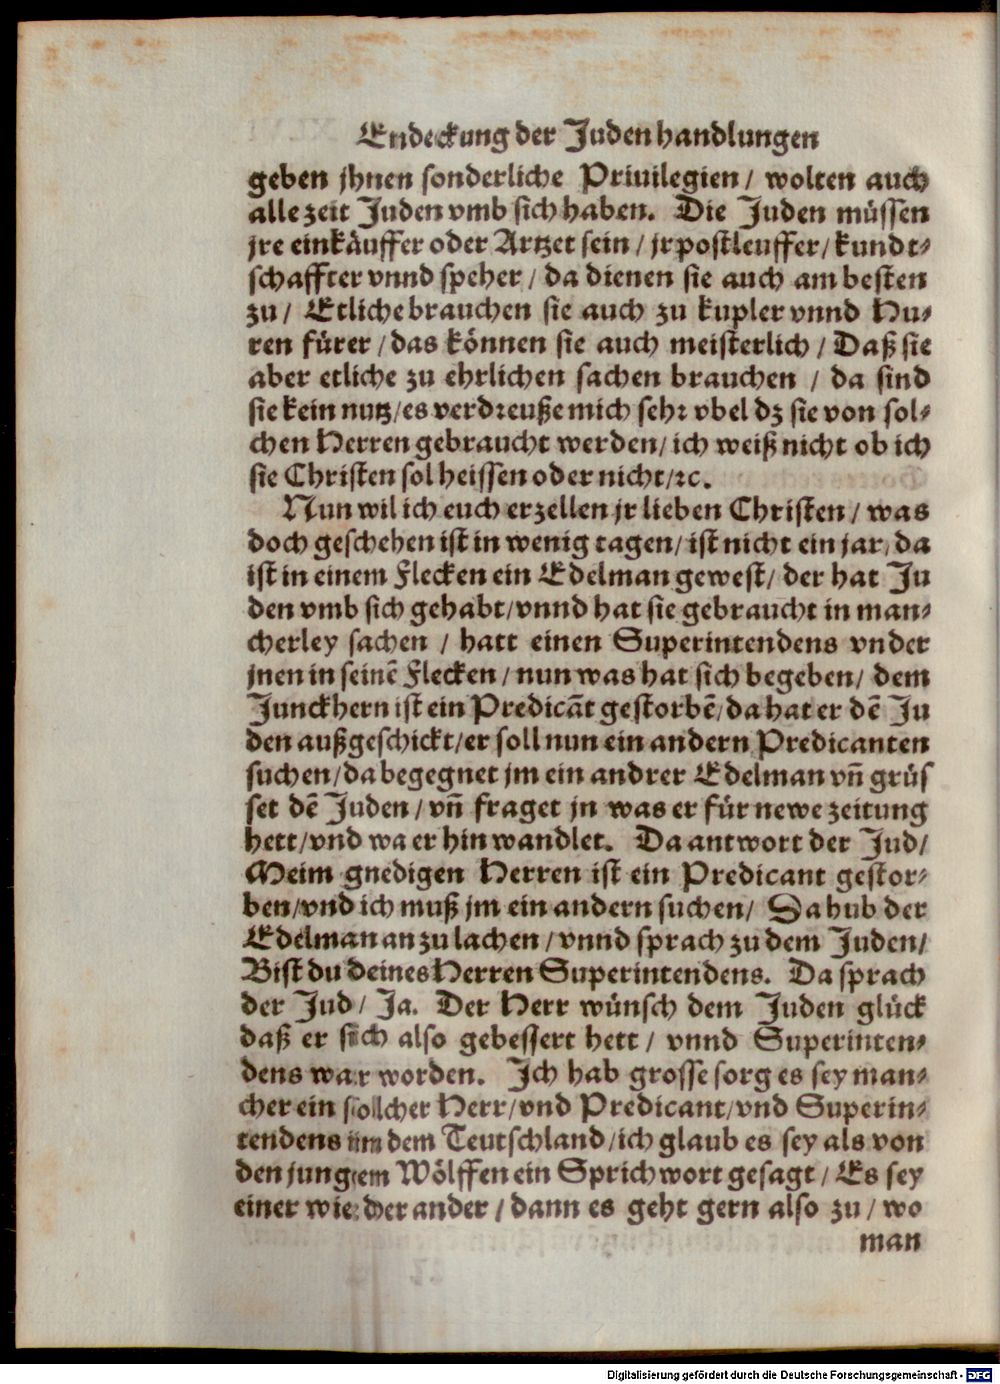 Endeckung der Juden handlungen
geben jhnen sonderliche Priuilegien / wolten auch
alle zeit Juden vmb sich haben. Die Juden müssen
jre einkäuffer oder Artzet sein / jr postleuffer / kundt⸗
schaffter vnnd speher / da dienen sie auch am besten
zu / Etliche brauchen sie auch zu kupler vnnd Hu⸗
ren fürer / das können sie auch meisterlich / Daß sie
aber etliche zu ehrlichen sachen brauchen / da sind
sie kein nutz / es verdreuße mich sehr vbel dz sie von sol⸗
chen Herren gebraucht werden / ich weiß nicht ob ich
sie Christen sol heissen oder nicht / ꝛc.
Nun wil ich euch erzellen jr lieben Christen / was
doch geschehen ist in wenig tagen / ist nicht ein jar / da
ist in einem Flecken ein Edelman gewest / der hat Ju
den vmb sich gehabt / vnnd hat sie gebraucht in man⸗
cherley sachen / hatt einen Superintendens vnder
jnen in seinē Flecken / nun was hat sich begeben / dem
Junckhern ist ein Predicāt gestorbē / da hat er dē Ju
den außgeschickt / er soll nun ein andern Predicanten
suchen / da begegnet jm ein andrer Edelman vn̄ grüs
set dē Juden / vn̄ fraget jn was er für newe zeitung
hett / vnd wa er hin wandlet. Da antwort der Jud /
Meim gnedigen Herren ist ein Predicant gestor⸗
ben / vnd ich muß jm ein andern suchen / Da hub der
Edelman an zu lachen / vnnd sprach zu dem Juden /
Bist du deines Herren Superintendens. Da sprach
der Jud / Ja. Der Herr wünsch dem Juden glück
daß er sich also gebessert hett / vnnd Superinten⸗
dens war worden. Ich hab grosse sorg es sey man⸗
cher ein sollcher Herr / vnd Predicant / vnd Superin⸗
tendens im dem Teutschland / ich glaub es sey als von
den jungem Wölffen ein Sprichwort gesagt / Es sey
einer wie der ander / dann es geht gern also zu / wo
man
Digitalisierung gefördert durch die Deutsche Forschungsgemeinschaft - DFG